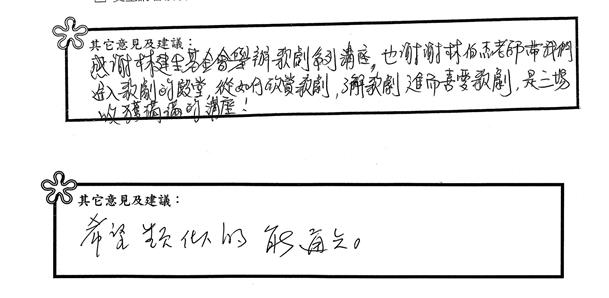 其它意見及建議：
感謝林建生基金會舉辦歌劇系列講座，也謝謝林伯杰老師帶我們
進入歌劇的殿堂，從如何欣賞歌劇，了解歌劇進而喜愛歌劇，是三場
收獲滿滿的講座！
其它意見及建議：
希望類似的能